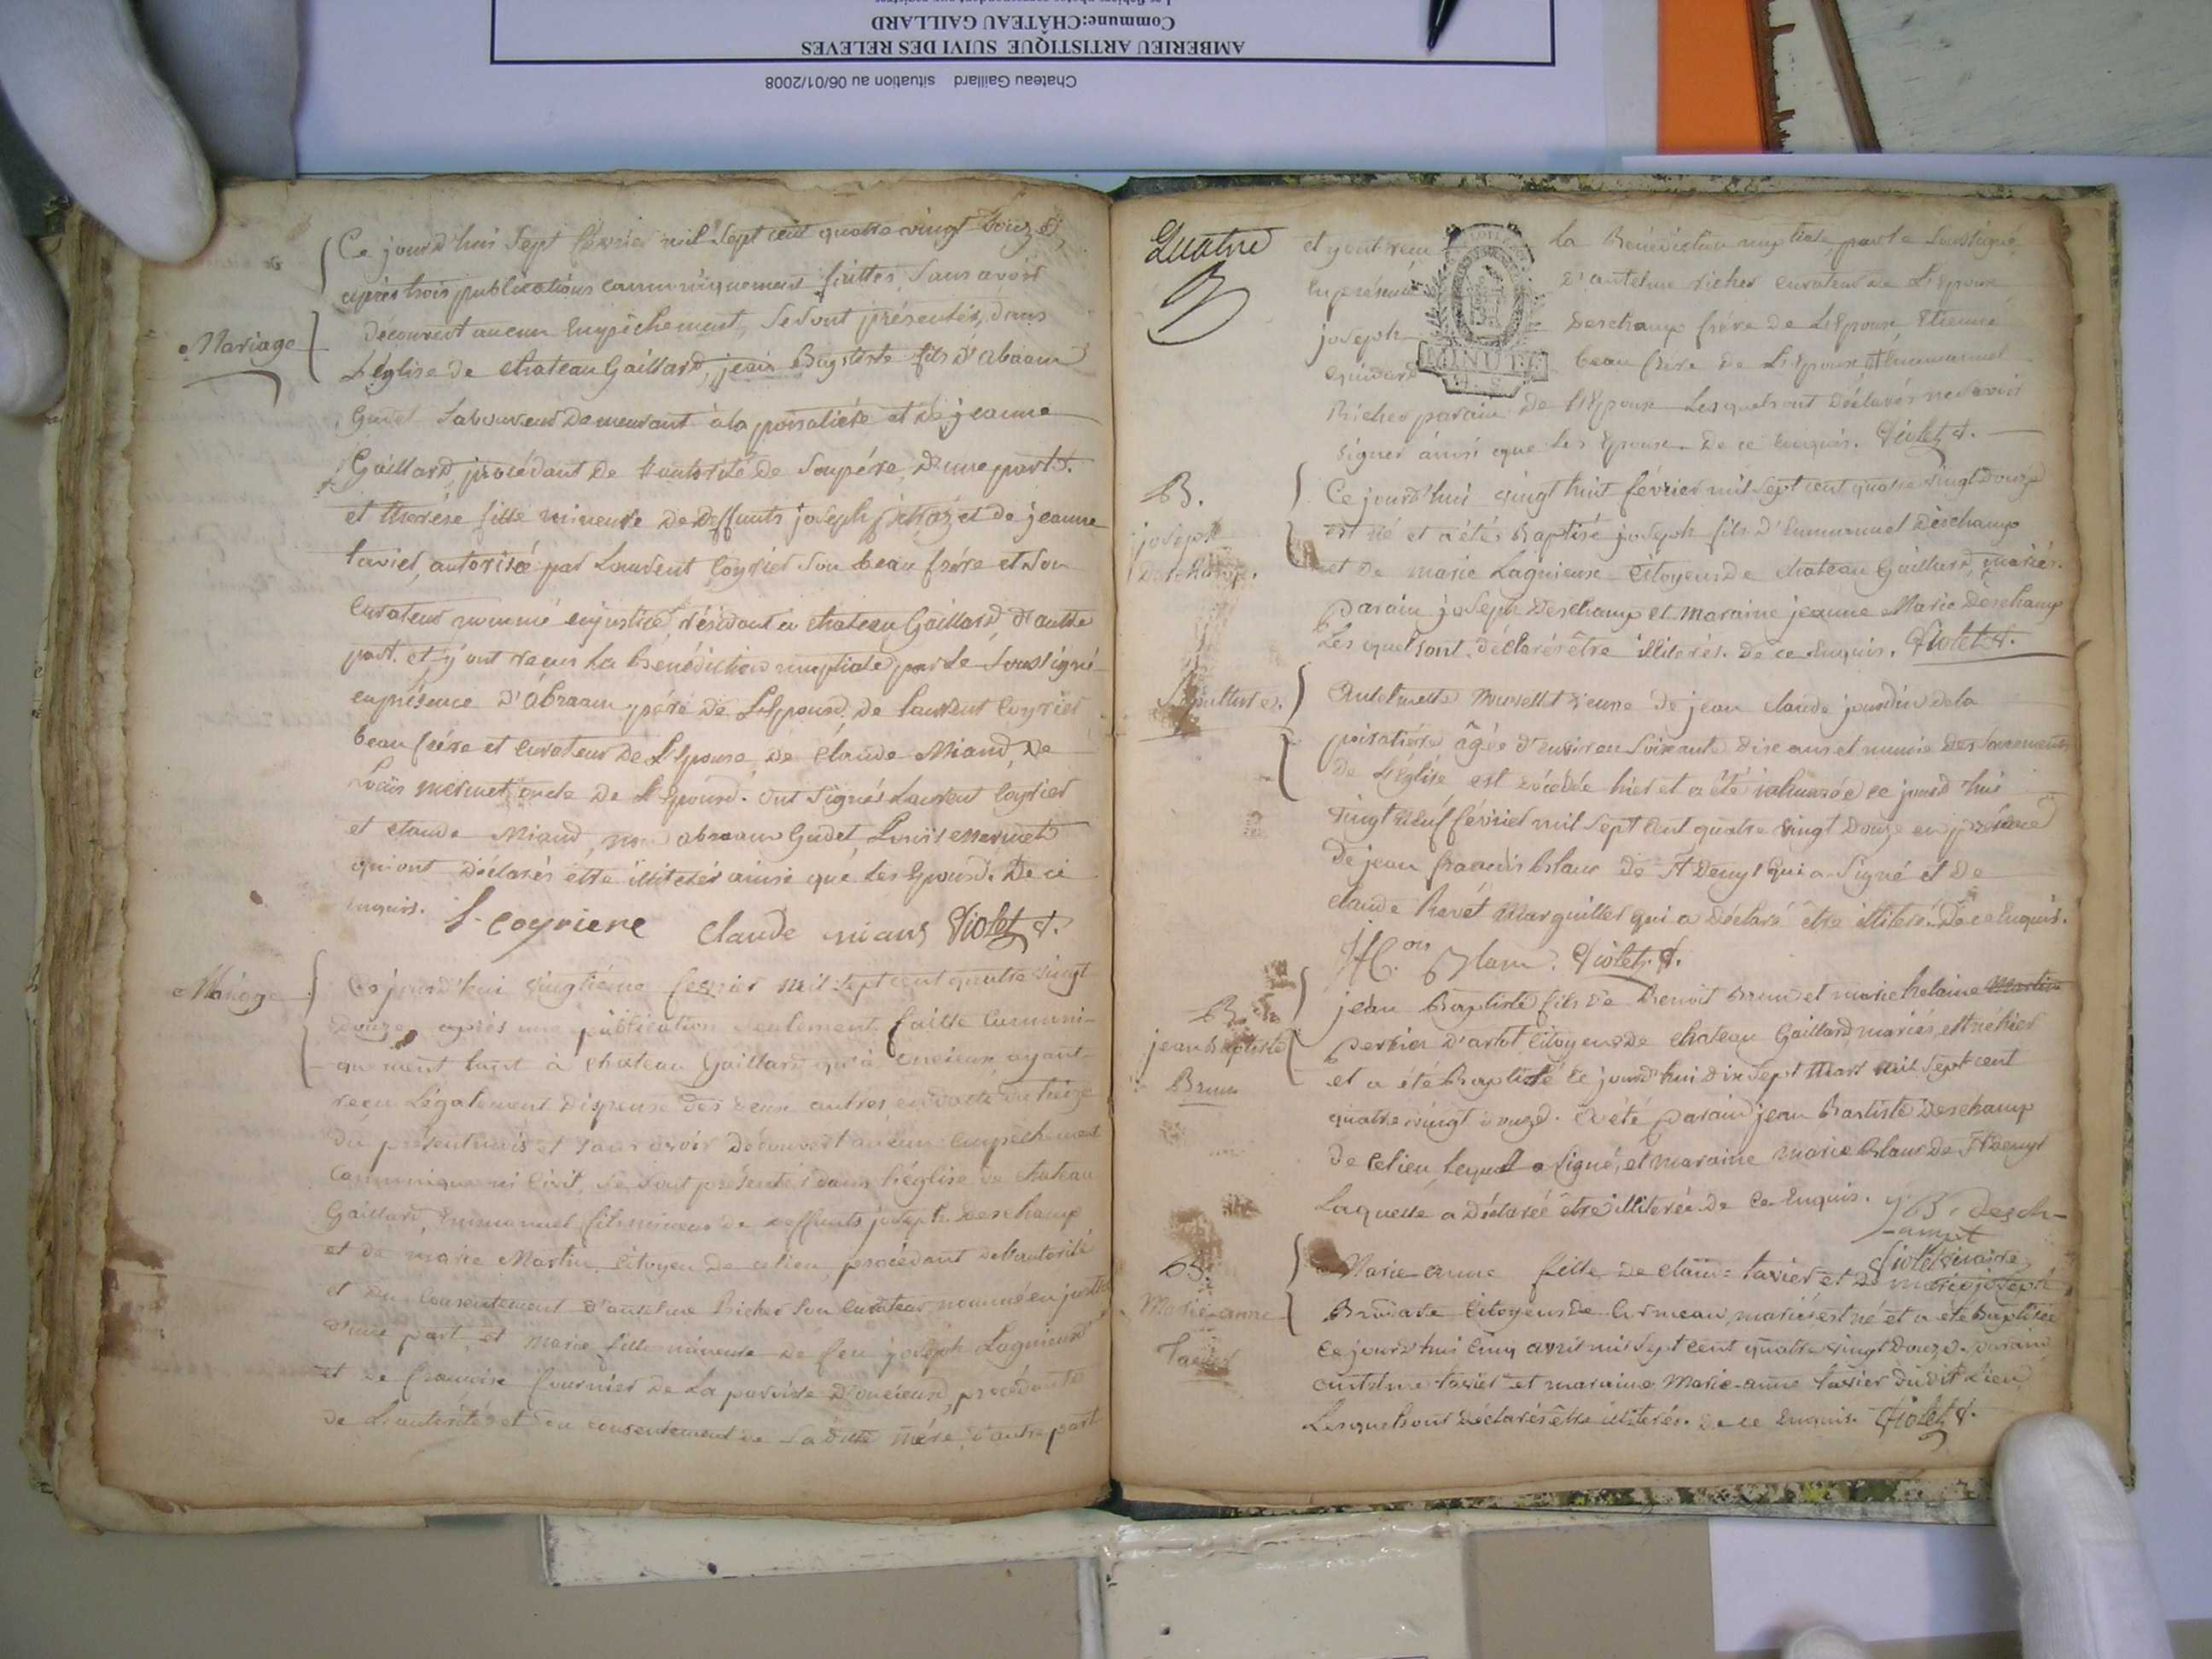 Les fichiers photos correspondent aux registres
Commune:CHÂTEAU GAILLARD
AMBERIEU ARTISTIQUE SUIVI DES RELEVES
Chateau Gaillard situation au 06/01/2008
Ce jourd'hui Sept février mil Sept cent quatre vingt douze,
après trois publications canoniquement faittes, Sans avoir
découvert aucun Empêchement, Se sont présentés, dans
Mariage
L'église de chateau Gaillard, jean Baptiste fils d'abraam
Gudet Laboureur demeurant à la poisatière et de jeanne
Gaillard, procédant de Lautorité de Son père, d'une part.
et therése fille mineure de deffunts joseph et de jeanne
tavier, autorisée par Laurent Coyrier Son beau frére et Son
Curateur nommé en justice, résidant à chateau Gaillard, d'autre
part. et y ont reçus La bénédiction nuptiale par Le Soussigné
en présence d'Abraam père de L'Epoux, de Laurent Coyrier
beau frére et Curateur de L'Epouse, de Claude Miand, de
Loüis mermet oncle de L'Epoux. ont Signés Laurent Coyrier
et claude Miand, non abraam Gudet, Loüis mermet
qui ont déclarés être illiterés ainsi que Les Epoux. De ce
enquis. L. coyriere claude miand Violet
Mariage
Ce jourd'hui vingtiéme fevrier mil sept cent quatre vingt
douze, après une publication Seulement faitte Canoni-
quement tant à chateau Gaillard qu'à oncieux, ayant
reçu Légalement dispense des deux autres, en datte du treize
du présent mois et sans avoir découvert aucun Empêchement
Canonique ni Civil, Se sont présentés dans l'église de chateau
Gaillard, Emmanuel fils mineur de deffunts joseph Deschamp
et de marie Martin, Citoyen de ce lieu, procédant de l'autorité
et du Consentement d'antelme Richer Son Curateur nommé en justice
d'une part, et Marie fille mineure de feu joseph Lagnieux
et de francoise fournier de La paroisse d'oncieux, procédante
de L'autorité et du consentement de Sa ditte mére, d'autre part
Quatre
et y ont reçu La Bénédiction nuptiale, par Le Soussigné
En présence d'antelme richer Curateur de L'Epoux
joseph Deschamp frére de L'Epoux Etienne
beau frére de L'Epoux et Emmanuel
MINUTE
Richer parain de L'Epoux Lesquels ont déclarés ne Savoir
Signer ainsi que Les Epoux. De ce Enquis. Violet
B.
joseph
Deschamp.
Ce jourd'hui vingt huit février mil Sept cent quatre vingt douze
est né et a été Baptisé joseph fils d'Emmanuel Deschamp
et de marie Lagnieux Citoyens de chateau Gaillard, mariés.
parain joseph Deschamp et maraine jeanne Marie Deschamp
Lesquels ont déclarés être illiterés. De ce Enquis. Violet
Sépulture.
Antelmette veuve de jean claude jourdin de la
poisatière âgée d'environ Soixante dix ans et munie des Sacrements
de L'église, est décédée hier et a été inhumée ce jourd'hui
vingt neuf février mil Sept cent quatre vingt douze en présence
de jean francois blanc de St Denys qui a Signé et de
claude Marguiller qui a déclaré être illiteré. De ce Enquis.
Blanc. Violet
B.
jean Baptiste
Brun
jean Baptiste fils de Benoit Brun et marie helaine
perrier d'artot Citoyens de chateau Gaillard mariés, est né hier
et a été Baptisé Ce jourd'hui dix Sept Mars mil Sept cent
quatre vingt douze. a été parain jean Baptiste Deschamp
de ce lieu, Lequel a Signé, et maraine marie blanc de St denys
Laquelle a déclarée être illiterée. De Ce Enquis. J. B. desch-
amps
Violet vicaire
B.
Marie-anne
Tavier
Marie-anne fille de claude tavier et de marie joseph
Citoyens de Cormeau, mariés est né et a été Baptisée
Ce jourd'hui Cinq avril mil Sept cent quatre vingt douze. parain
antelme tavier et maraine Marie-anne tavier dudit Lieu
Lesquels ont déclarés être illiterés. De ce Enquis. Violet